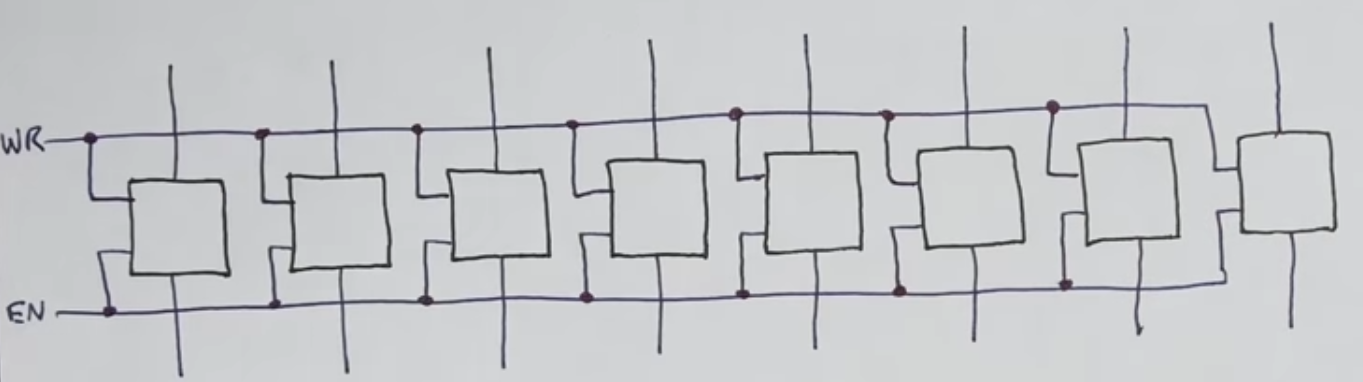 WR
EN